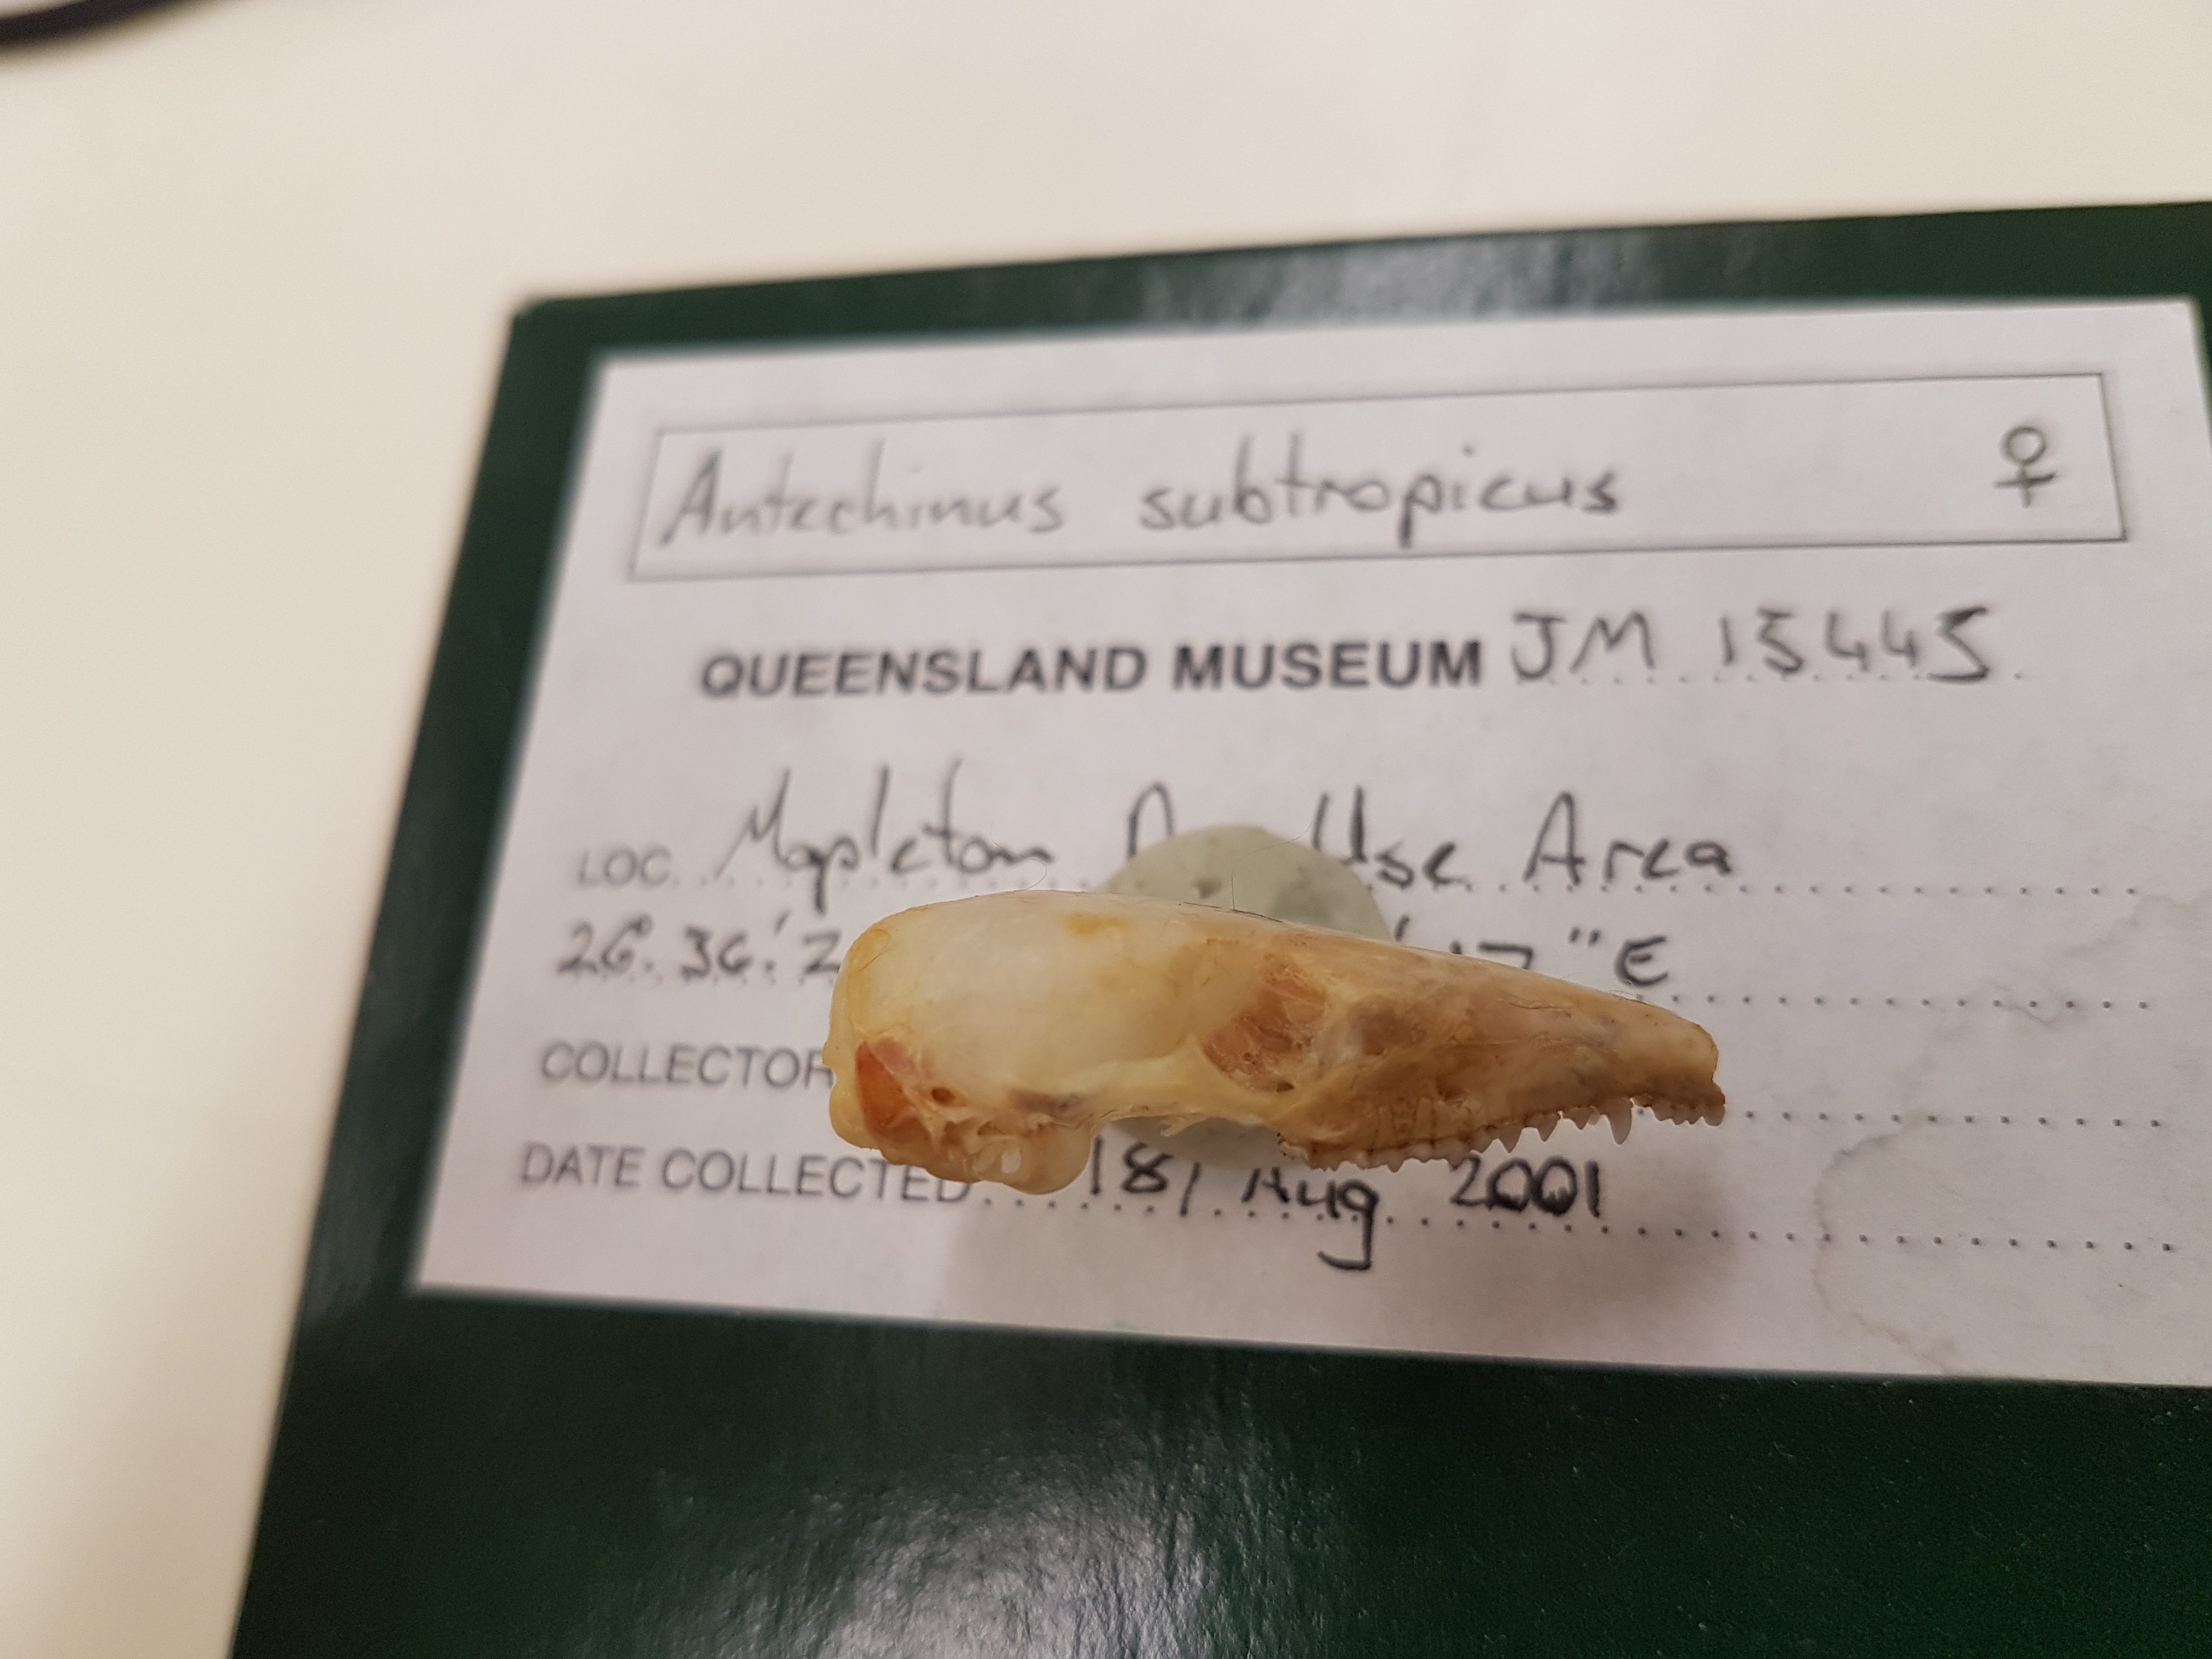 Antechinus subtropicus ♀
QUEENSLAND MUSEUM JM 15445
LOC. Mapleton Use Area
26° 36.' "E
COLLECTOR
DATE COLLECTED 18 / Aug 2001